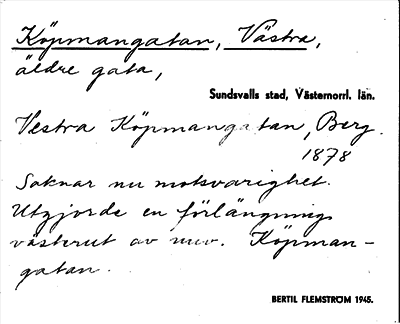 Köpmangatan, Västra,
äldre gata,
Sundsvalls stad, Västernorrl. län.
Vestra Köpmangatan, Berg.
1878
Saknar nu motsvarighet.
Utgjorde en förlängning
västerut av nuv. Köpman-
gatan.
BERTIL FLEMSTRÖM 1945.